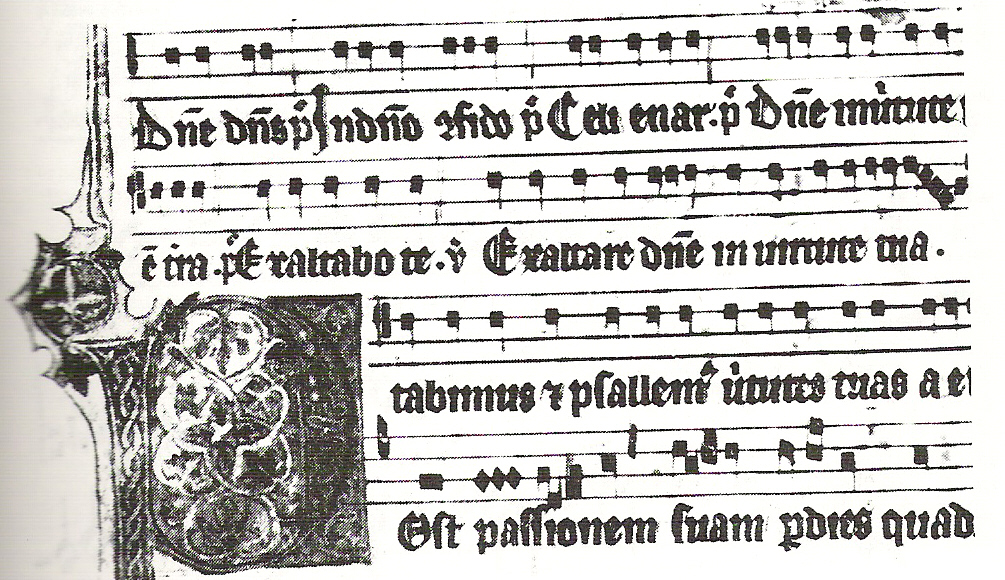 Dñe dñs p̃ Indño ꝯfido p̃ Celi enar. p̃ Dñe in uirtute
ẽ ira. p̃ Exaltabo te. v̉ Exaltare dñe in uirtute tua.
tabimus ⁊ psallem᷒ ũtutes tuas a e
Ost passionem suam ꝑ dies quad